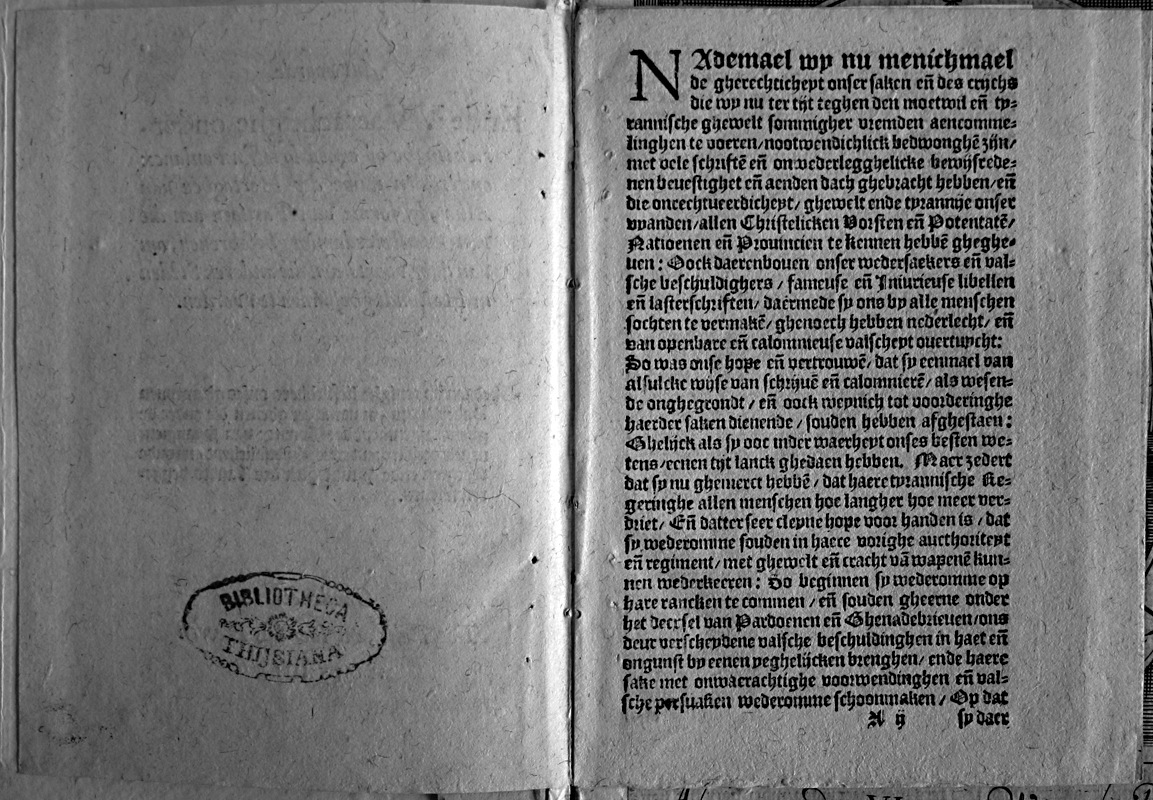 BIBLIOTHECA
THYSIANA
NAdemael wy nu menichmael
de gherechticheyt onser saken eñ des crijchs
die wy nu ter tijt teghen den moetwil eñ ty⸗
rannische ghewelt sommigher vremden aencomme⸗
linghen te voeren/nootwendichlick bedwonghē zijn/
met vele schriftē eñ onwederlegghelicke bewijsrede⸗
nen beuestighet eñ aenden dach ghebracht hebben/eñ
die onrechtueerdicheyt/ ghewelt ende tyrannije onser
vyanden/allen Christelicken Vorsten eñ Potentatē/
Natioenen eñ Provincien te kennen hebbē gheghe⸗
uen: Oock daerenbouen onser wedersaekers eñ val⸗
sche beschuldighers / fameuse eñ Iniurieuse libellen
eñ lasterschriften/ daermede sy ons by alle menschen
sochten te vermakē/ ghenoech hebben nederlecht/ eñ
van openbare eñ calomnieuse valscheyt ouertuycht:
So was onse hope eñ vertrouwē/ dat sy eenmael van
alsulcke wijse van schrijuē eñ calomnierē/ als wesen⸗
de onghegrondt / eñ oock weynich tot voorderinghe
haerder saken dienende / souden hebben afghestaen:
Ghelijck als sy ooc inder waerheyt onses besten we⸗
tens/eenen tijt lanck ghedaen hebben. Maer zedert
dat sy nu ghemerct hebbē / dat haere tyrannische Re⸗
geringhe allen menschen hoe langher hoe meer ver⸗
driet/ Eñ datter seer cleyne hope voor handen is / dat
sy wederomme souden in haere vorighe aucthoriteyt
eñ regiment/ met ghewelt eñ cracht vā wapenē kun⸗
nen wederkeeren: So beginnen sy wederomme op
hare rancken te commen / eñ souden gheerne onder
het decxsel van Pardoenen eñ Ghenadebrieuen/ons
deur verscheydene valsche beschuldinghen in haet eñ
ongunst by eenen yeghelijcken brenghen/ ende haere
sake met onwaerachtighe voorwendinghen eñ val⸗
sche persuasien wederomme schoonmaken / Op dat
A ij sy daer